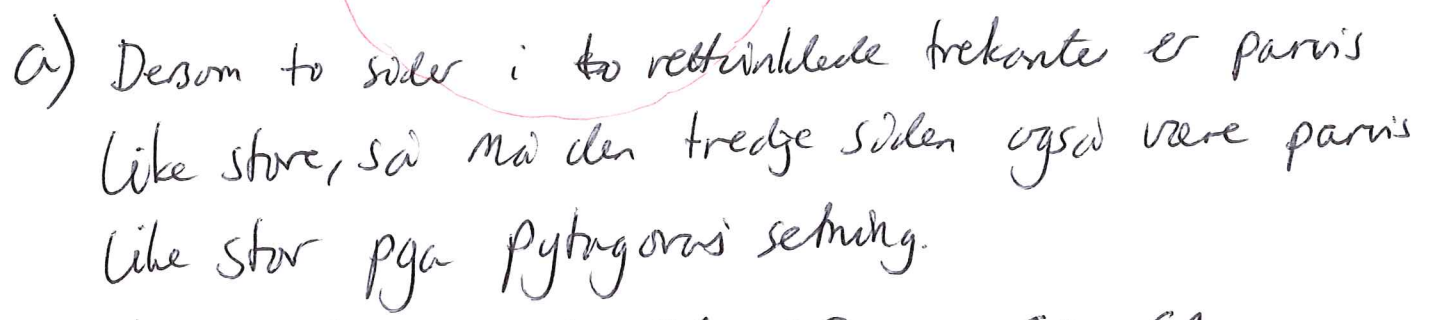 a) Dersom to sider i to rettvinklede trekanter er parvis
like store, så må den tredje siden også være parvis
like stor pga Pytagoras' setning.